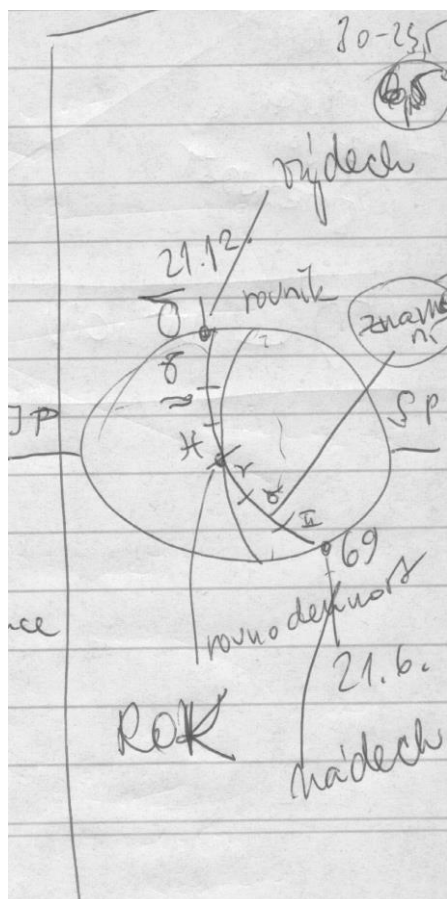 30-23,5
6,5
výdech
21.12.
rovník
znamení
♉
♒
JP
SP
♓
♈
♉
♊
♋
rovnodennost
21.6.
ROK
nádech